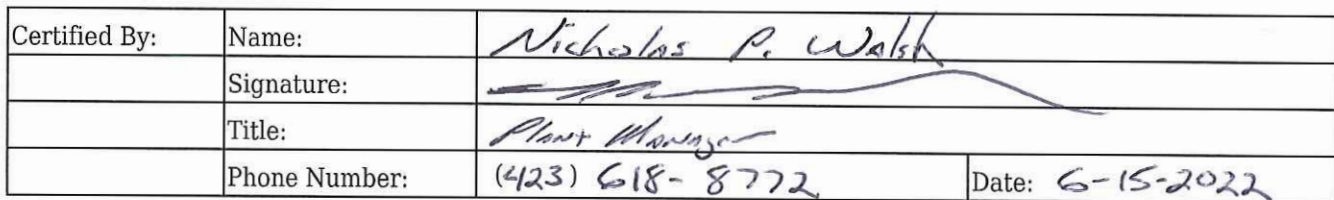 Certified By: Name: Nicholas P. Walsh
Signature:
Title: Plant Manager
Phone Number: (423) 618-8772 Date: 6-15-2022